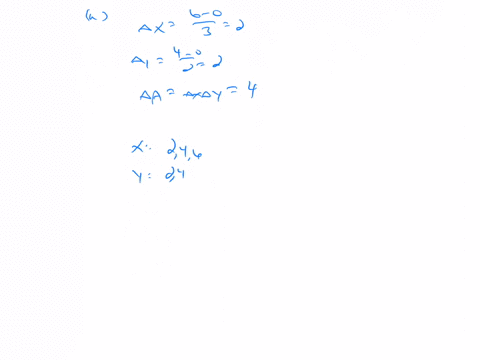 (a) Δx = (6-0)/3 = 2
Δy = (4-0)/2 = 2
ΔA = ΔxΔy = 4
x: 2,4,6
y: 2,4